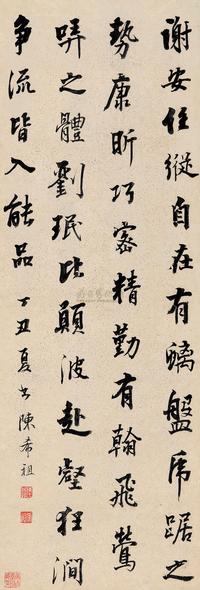 谢安任纵自在有螭盘虎踞之
势康昕巧密精勤有翰飞莺
哢之體劉珉比顛波赴壑狂澗
争流皆入能品
丁丑夏书陳希祖